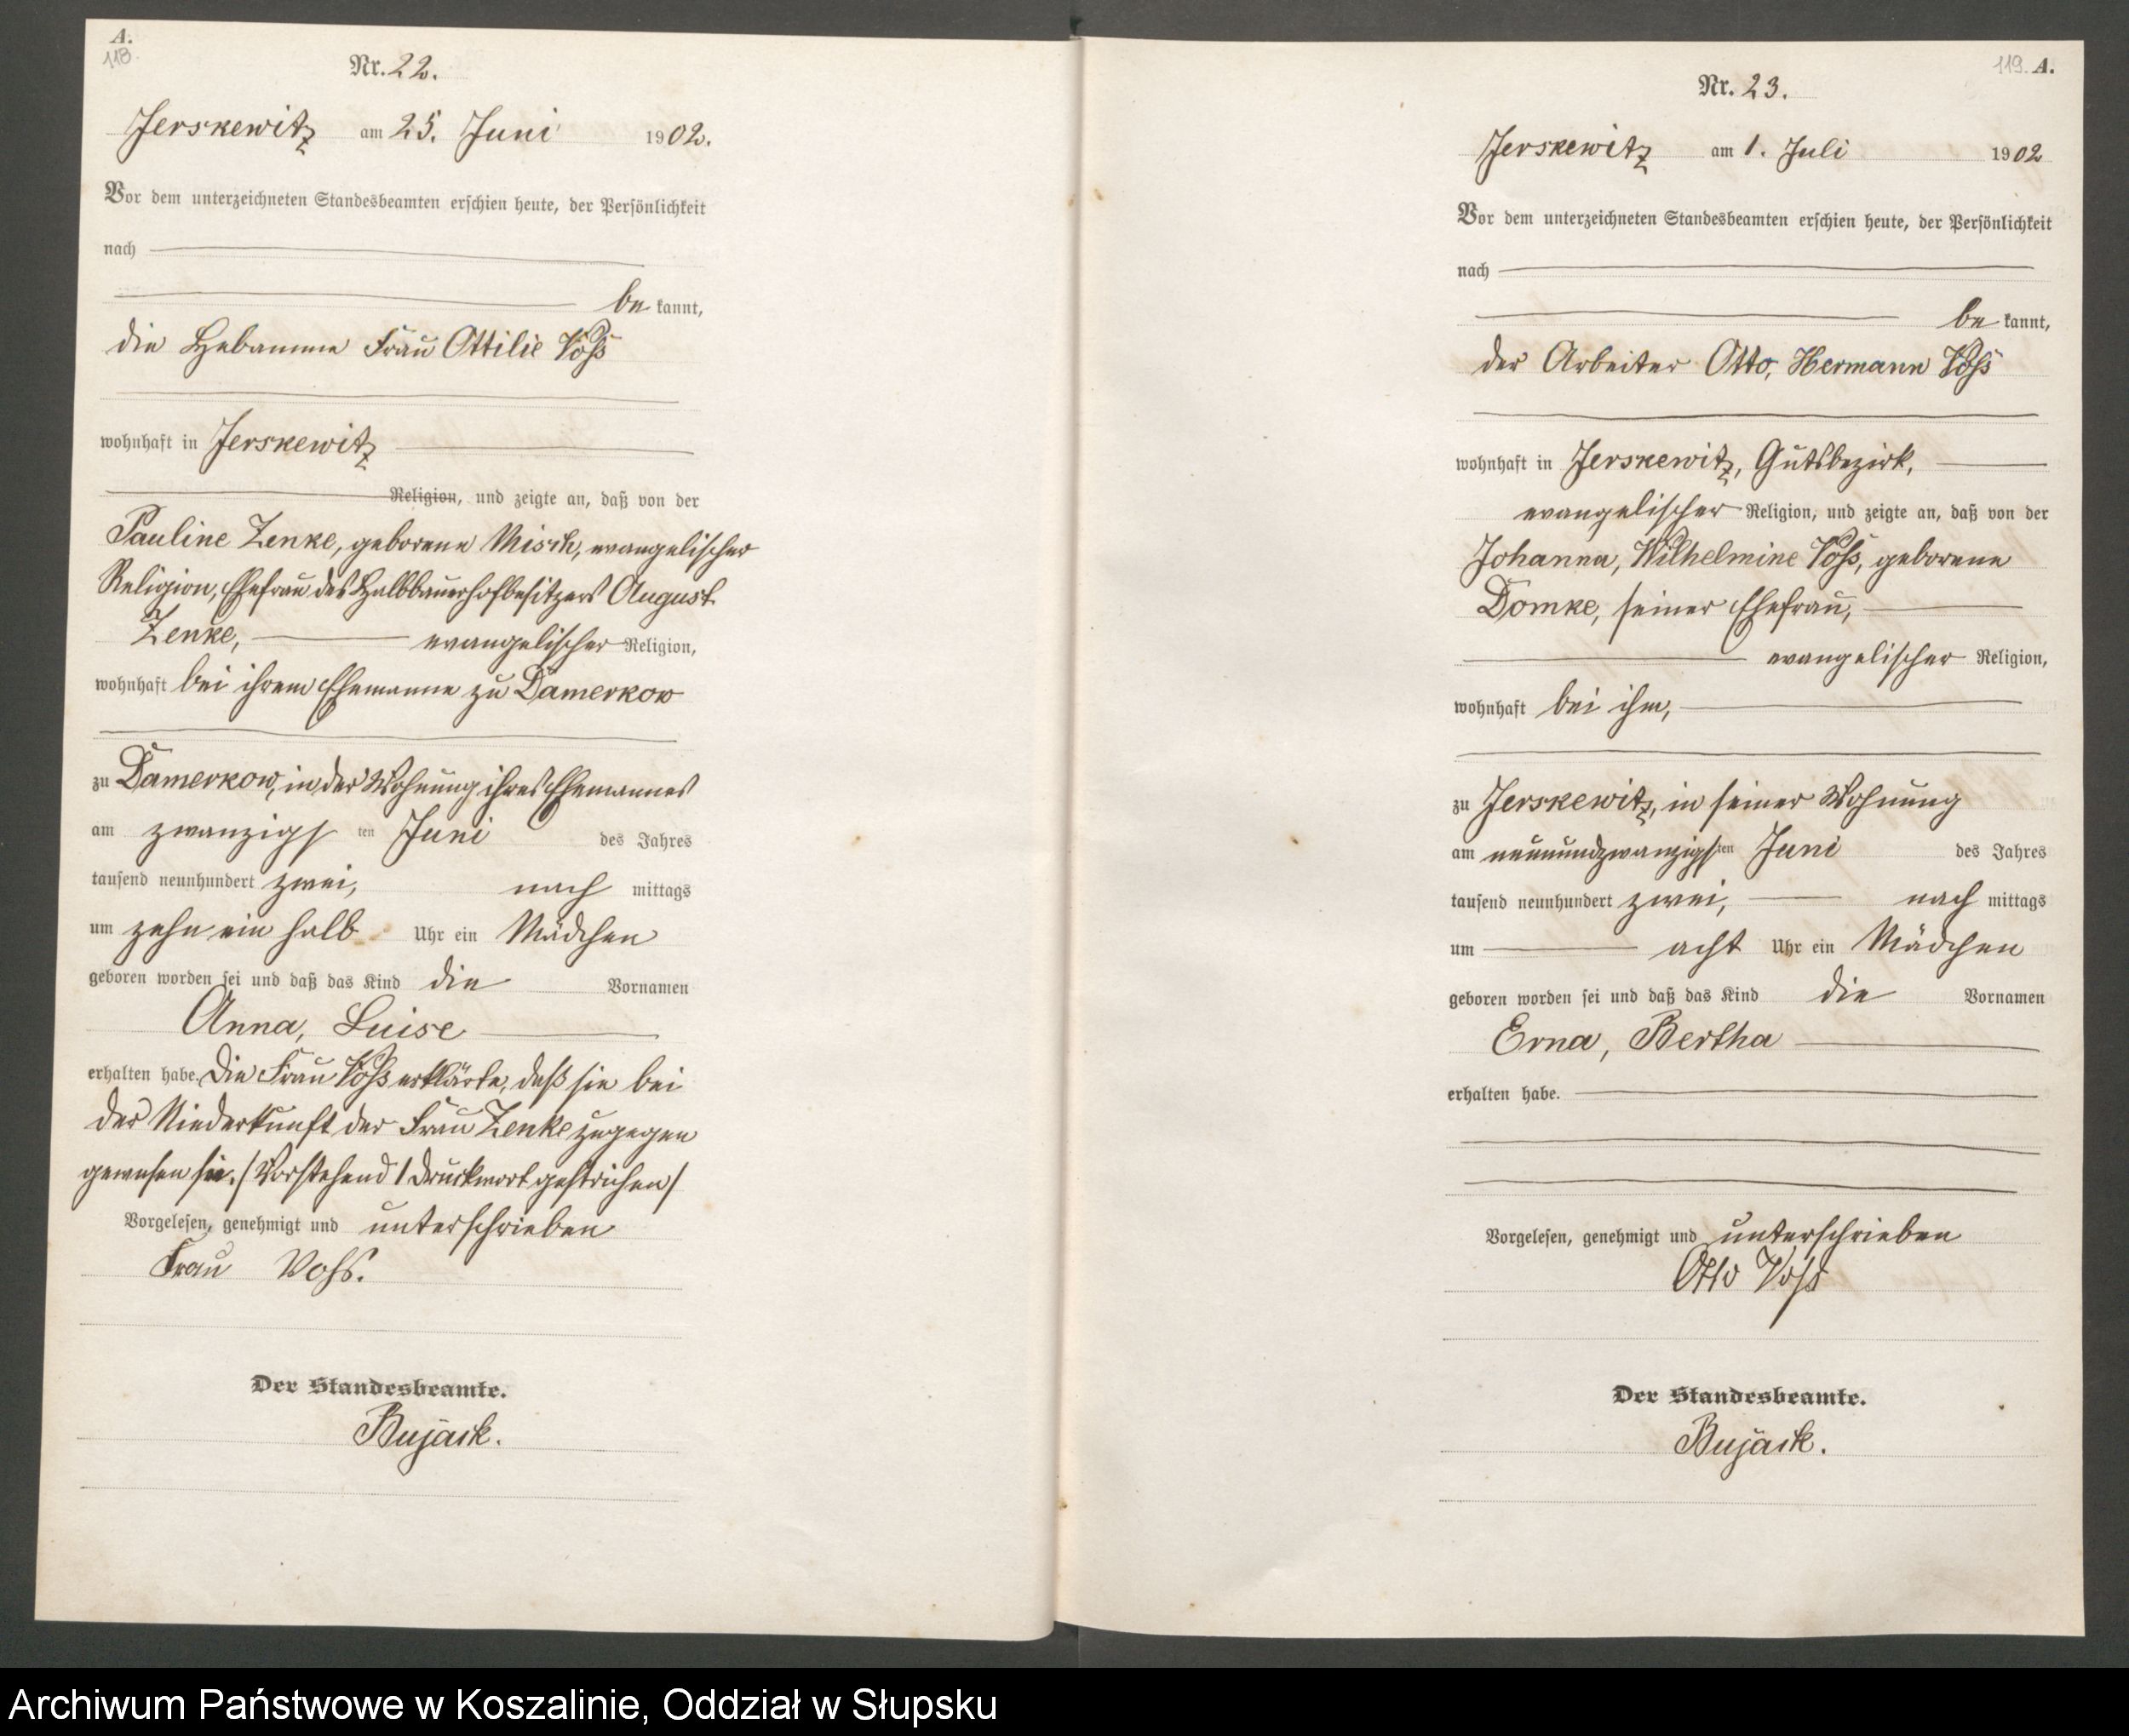 A.
118.
Nr. 22.
Jerskewitz am 25. Juni 1902.
Vor dem unterzeichneten Standesbeamten erschien heute, der Persönlichkeit
nach
be kannt,
die Hebamme Frau Ottilie Voß
wohnhaft in Jerskewitz
Religion, und zeigte an, daß von der
Pauline Zenke, geborene Misch, evangelischer
Religion, Ehefrau des Halbbauerhofbesitzers August
Zenke, evangelischer Religion,
wohnhaft bei ihrem Ehemanne zu Damerkow
zu Damerkow, in der Wohnung ihres Ehemannes
am zwanzigsten Juni des Jahres
tausend neunhundert zwei, nach mittags
um zehn ein halb Uhr ein Mädchen
geboren worden sei und daß das Kind die Vornamen
Anna, Luise
erhalten habe. Die Frau Voß erklärte, daß sie bei
der Niederkunft der Frau Zenke zugegen
gewesen sei. / Vorstehend 1 Druckwort gestrichen /
Vorgelesen, genehmigt und unterschrieben
Frau Voß.
Der Standesbeamte.
Bujack.
119. A.
Nr. 23.
Jerskewitz am 1. Juli 1902
Vor dem unterzeichneten Standesbeamten erschien heute, der Persönlichkeit
nach
be kannt,
der Arbeiter Otto, Hermann Voß
wohnhaft in Jerskewitz, Gutsbezirk,
evangelischer Religion, und zeigte an, daß von der
Johanna, Wilhelmine Voß, geborene
Domke, seiner Ehefrau,
evangelischer Religion,
wohnhaft bei ihm,
zu Jerskewitz, in seiner Wohnung
am neunundzwanzigsten Juni des Jahres
tausend neunhundert zwei, nach mittags
um acht Uhr ein Mädchen
geboren worden sei und daß das Kind die Vornamen
Erna, Bertha
erhalten habe.
Vorgelesen, genehmigt und unterschrieben
Otto Voß
Der Standesbeamte.
Bujack.
Archiwum Państwowe w Koszalinie, Oddział w Słupsku